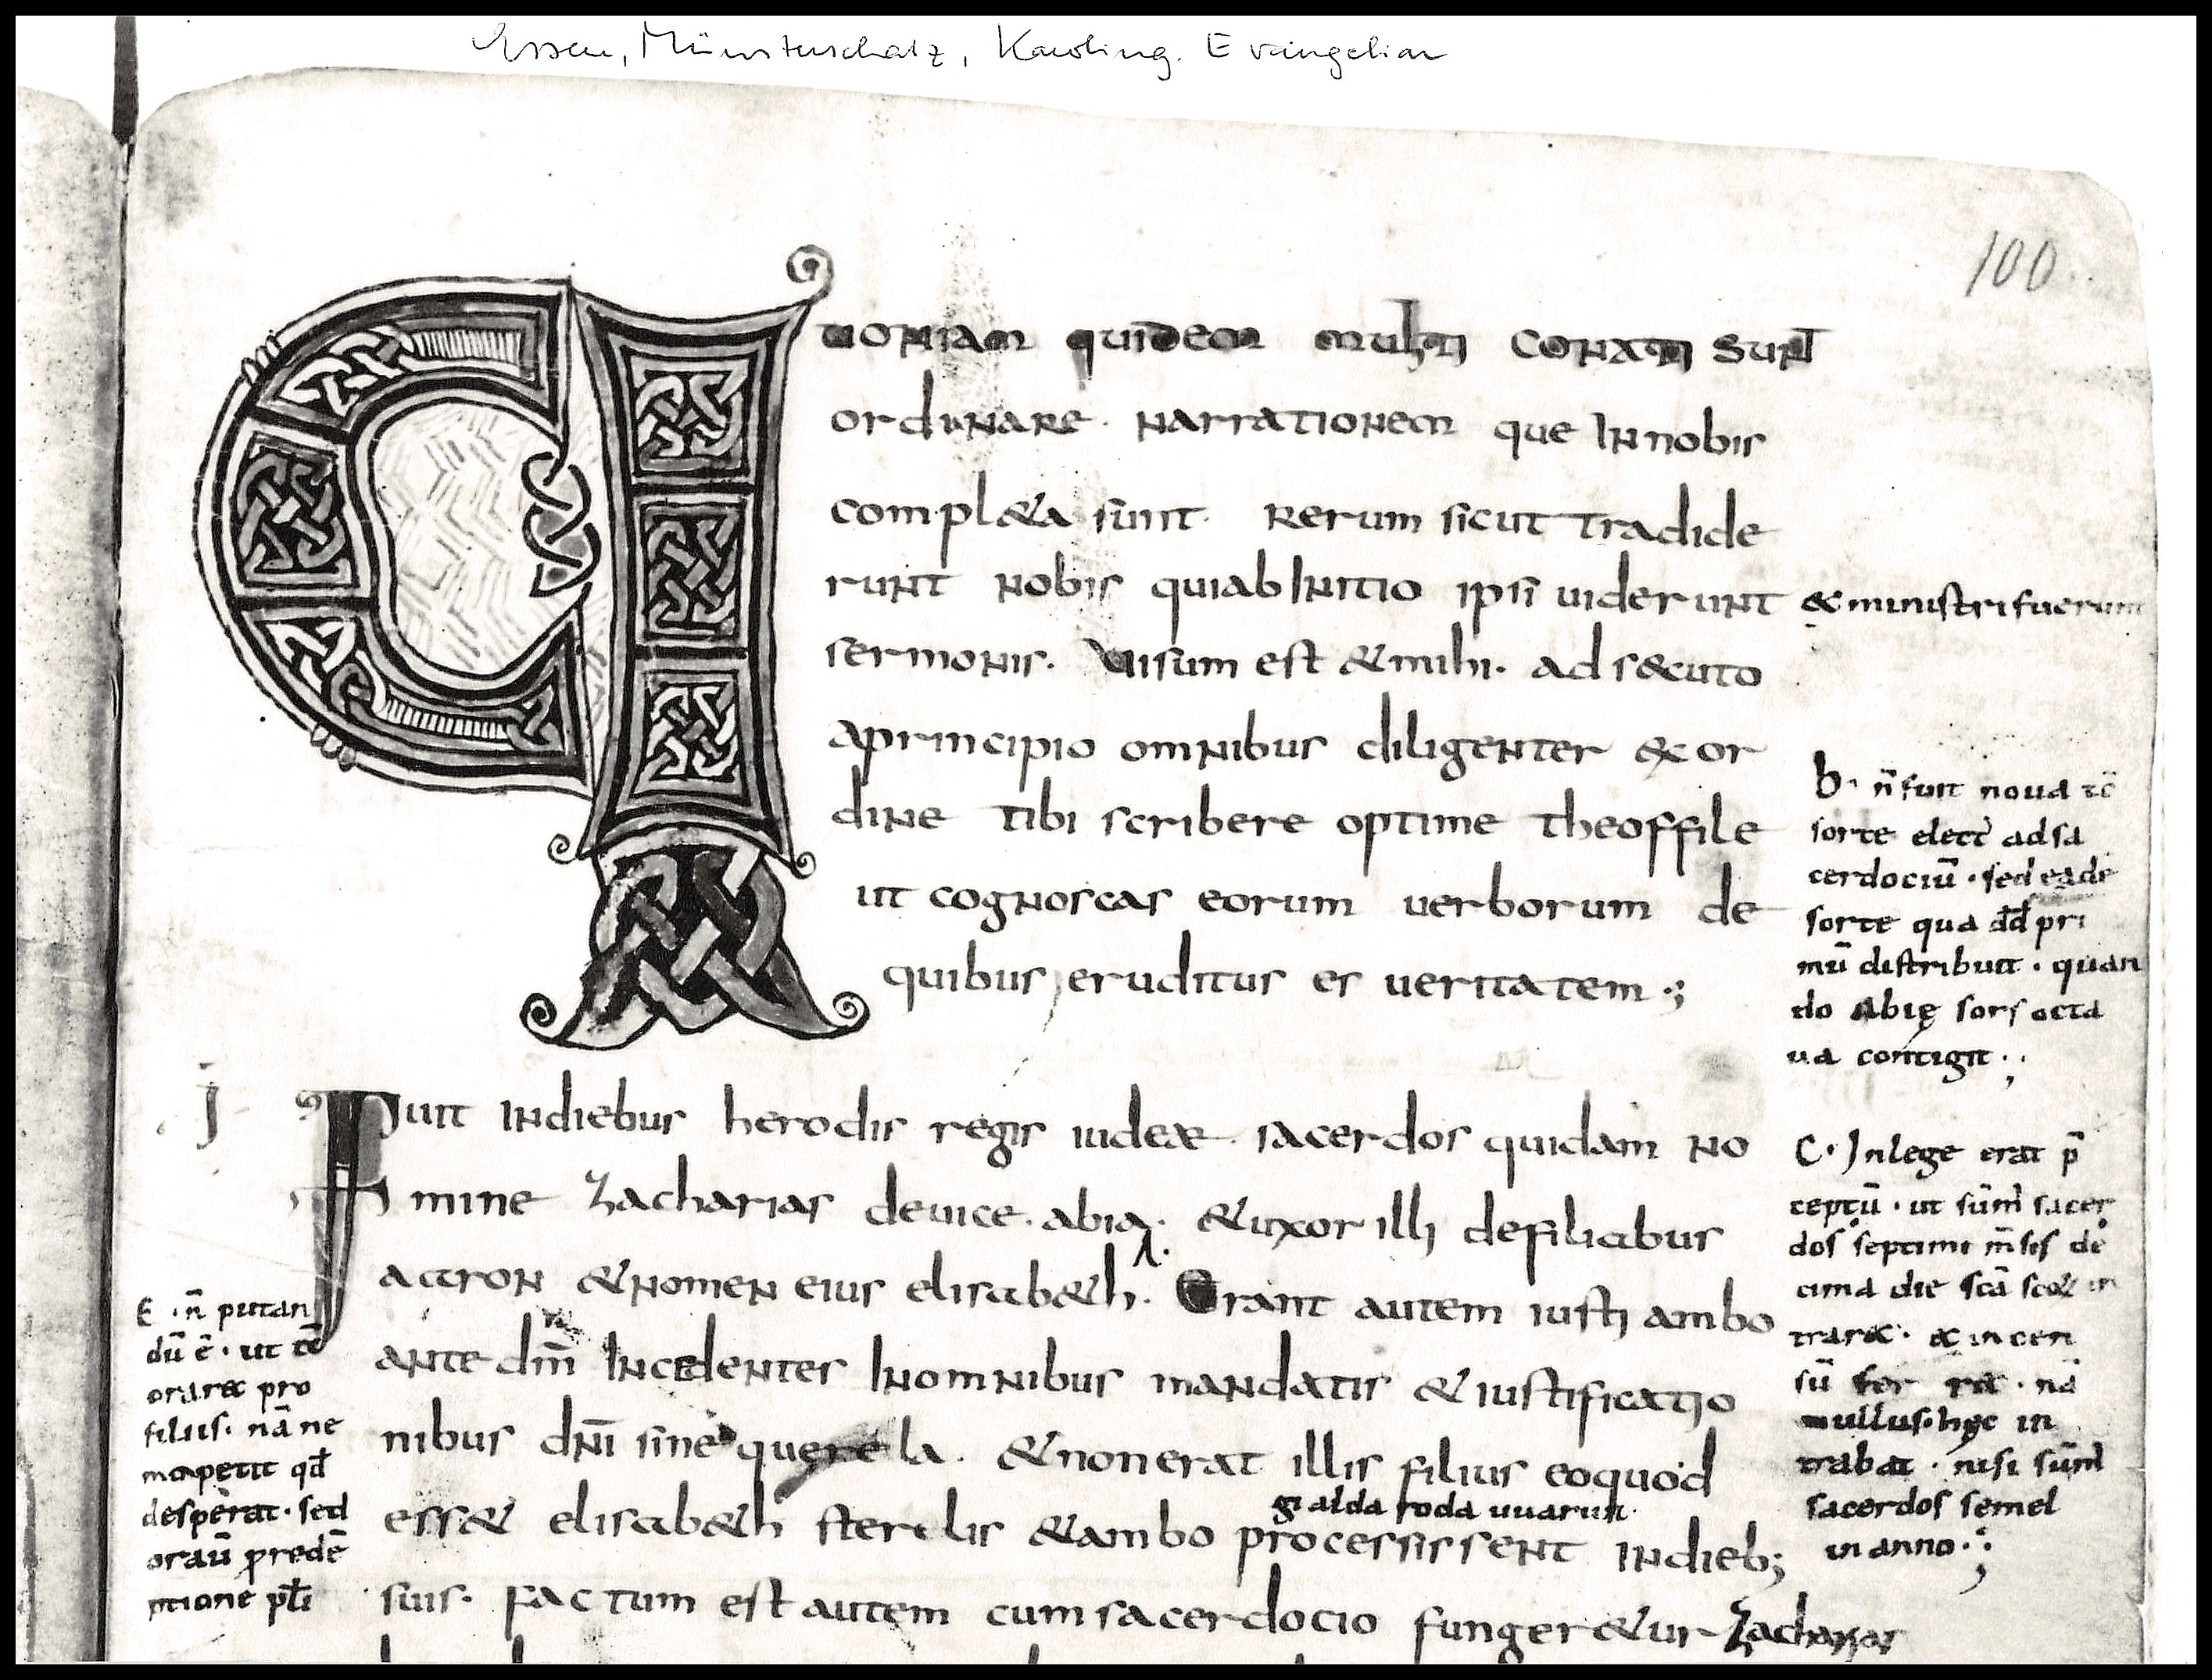 Essen, Münsterschatz, Karoling. Evangeliar
100
Quoniam quidem multi conati sunt
ordinare · narrationem que In nobis
compl&a sunt · rerum sicut tradide
runt nobis quiab Initio ipsi uiderunt &ministrifuerunt
sermonis · Uisum est &mihi · ad s&cuto
aprincipio omnibus diligenter &xor
dine tibi scribere optime theoffile
ut cognoscas eorum uerborum de
quibus eruditus es ueritatem ·;
b · n̄ fuit noua tc̄
sorte elect adsa
cerdociū · sed eadē
sorte qua dd̄ pri
mū distribuit · quan
do Abię sors octa
ua contigit ·;
Fuit Indiebus herodis regis iudeæ · sacerdos quidam no
mine Zacharias deuice · abia · &uxor illi defiliabus
aaron &nomen eius elisab&h · Erant autem iusti ambo
ante dm̄ Incedentes Inomnibus mandatis &iustificatio
nibus dn̄i sine querela · &nonerat illis filius eoquod
gialda foda uuarun ·
ess& elisab&h sterelis &ambo processissent Indieb;
suis · Factum est autem cumsacerdocio funger&ur Zacharias
C · Inlege erat p̄
ceptū · ut sūm sacer
dos septimi m̄sis de
cima die sc̄a sco& in
trar& · & incen
sū fer r& · nā
nullus hęc in
trabat · nisi sūm
sacerdos semel
in anno ·;
E · n̄ putan
dū ē · ut
orar& pro
filiis · nā ne
mo petit qd̄
desperat · sed
oraū p redē
ptione pl̄i